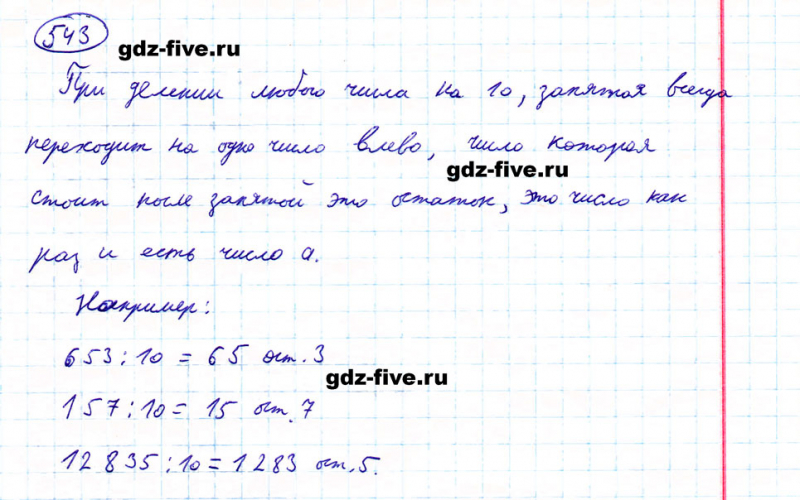 543
gdz-five.ru
При делении любого числа на 10, запятая всегда
переходит на одно число влево, число которая
gdz-five.ru
стоит после запятой это остаток, это число как
раз и есть число а.
Например:
653:10 = 65 ост. 3
gdz-five.ru
157:10 = 15 ост. 7
12835:10 = 1283 ост. 5.